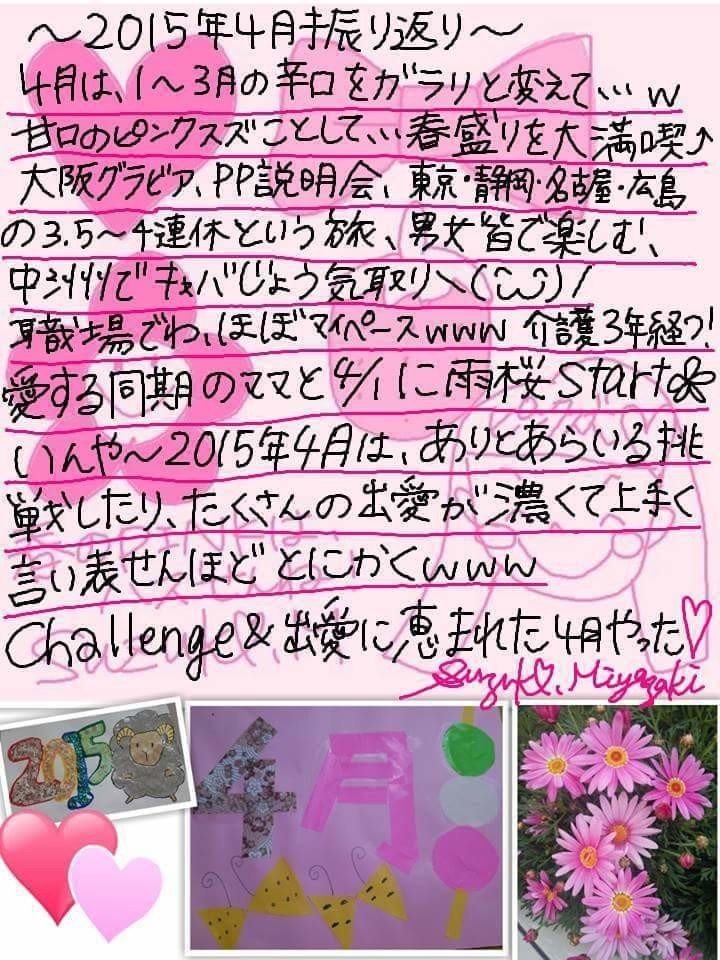 ～2015年4月振り返り～
4月は、1～3月の辛口をガラリと変えて…w
甘口のピンクスズことして…春盛りを大満喫♪
大阪グラビア、PP説明会、東京・静岡・名古屋・広島
の3.5～4連休という旅、男女皆で楽しむ、
中洲でキャバじょう気取り＼(^ω^)/
職場でわ、ほぼマイペースwww 介護3年経つ!
愛する同期のママと4/1に雨桜start
いんや～2015年4月は、ありとあらいる挑
戦したり、たくさんの出愛が濃くて上手く
言い表せんほどとにかくwww
Challenge&出愛に恵まれた4月やった♡
Suzuk♡.Miyazaki
2015
4月